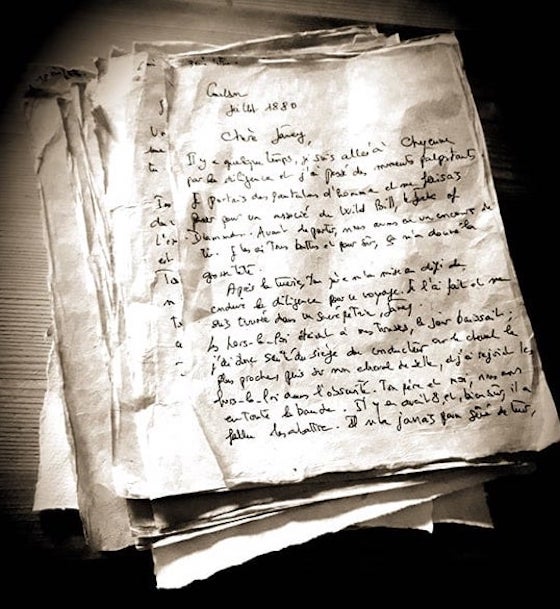 Coulson
Juillet 1880
Chère Janey,
Il y a quelque temps, je suis allée à Cheyenne
par la diligence et j'ai passé des moments palpitants.
Je portais des pantalons d'homme et me faisais
passer pour un associé de Wild Bill, le Jack of
Diamonds. Avant de partir, nous avons eu un concours de
tir. Je les ai tous battus et pour sûr, ça m'a donné la
grosse tête.
Après le tir, ton père m'a mise au défi de
conduire la diligence pour ce voyage. Je l'ai fait et me
suis trouvée dans un sacré pétrin, Janey
les hors-la-loi étaient à nos trousses, le jour baissait ;
j'ai donc sauté du siège du conducteur sur le cheval le
plus proche, puis sur mon cheval de selle, et j'ai rejoint les
hors-la-loi dans l'obscurité. Ton père et moi, nous avons
eu toute la bande. Il y en avait 8 et, bien sûr, il a
fallu les abattre. Il n'a jamais peur de tuer,